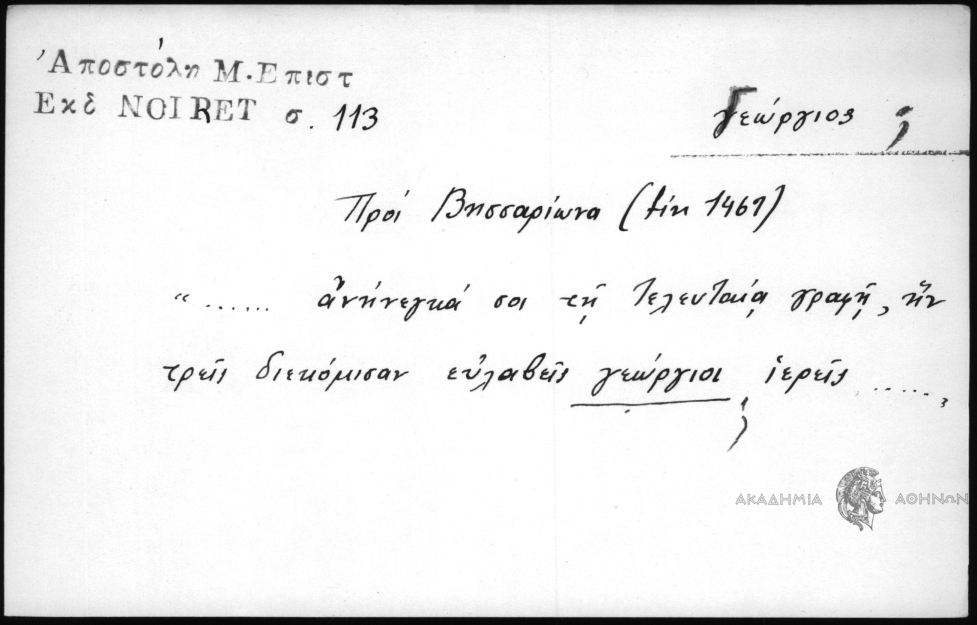 Ἀποστόλη Μ. Επιστ
Εκδ NOIRET σ. 113
Γεώργιος ;
Πρός Βησσαρίωνα (1467)
“ ...... ἀνήνεγκά σοι τῇ τελευταίᾳ γραφῇ, ἥν
τρεῖς διεκόμισαν εὐλαβεῖς γεώργιοι ἱερεῖς ......,
;
ΑΚΑΔΗΜΙΑ ΑΘΗΝΩΝ